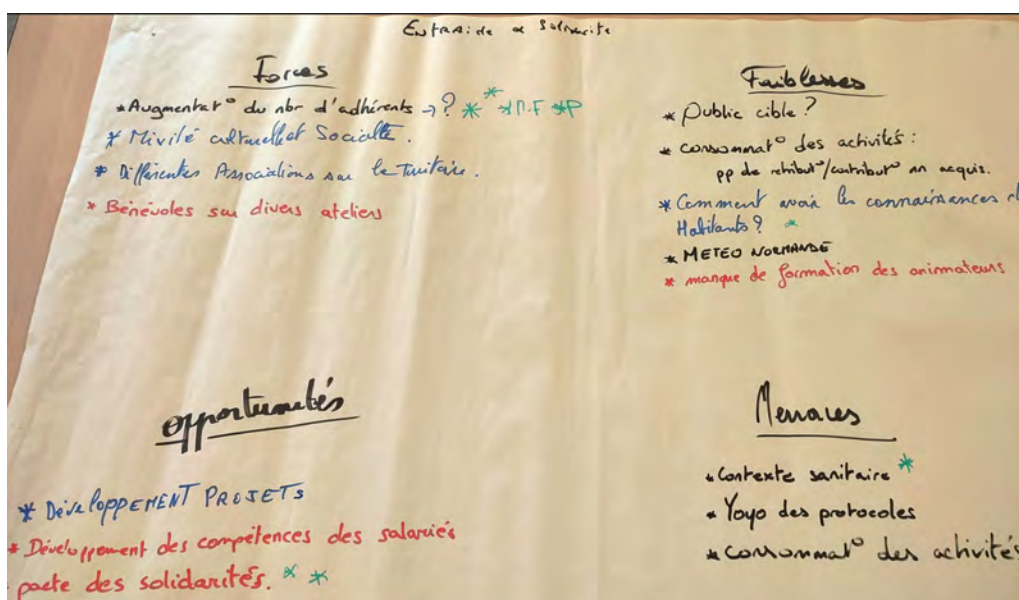 Entraide et Solidarité
Forces
* Augmentat° du nbr d'adhérents → ? * * → N.F *P
* Mivité culturelle et Sociale.
* Différentes Associations sur le Territoire.
* Bénévoles sur divers ateliers
Faiblesses
* Public cible ?
* consommat° des activités :
pp de rétribut°/contribut° non acquis.
* Comment avoir les connaissances
Habitants ? *
* METEO NORMANDE
* manque de formation des animateurs
opportunités
* DéveloPPEMENT PROJETS
* Développement des compétences des salariés
pacte des solidarités. * *
Menaces
* Contexte sanitaire *
* Yoyo des protocoles
* consommat° des activités